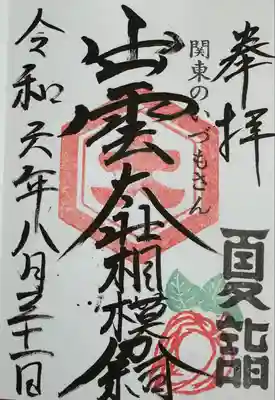 奉拝
関東のいづもさん
出雲大社相模分祠
夏詣
令和元年八月三十一日